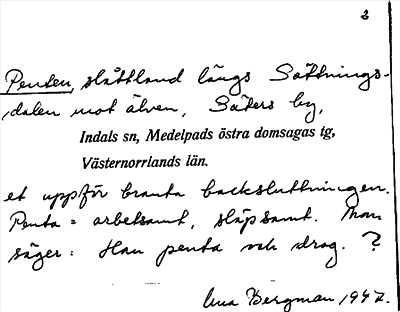 2
Penten, slåttland längs Sättnings-
dalen mot älven, Säters by,
Indals sn, Medelpads östra domsagas tg,
Västernorrlands län.
et uppför branta backsluttningen.
Penta = arbetsamt, släpsamt. Man
säger: Han penta och drog. ?
Bergman 1942.